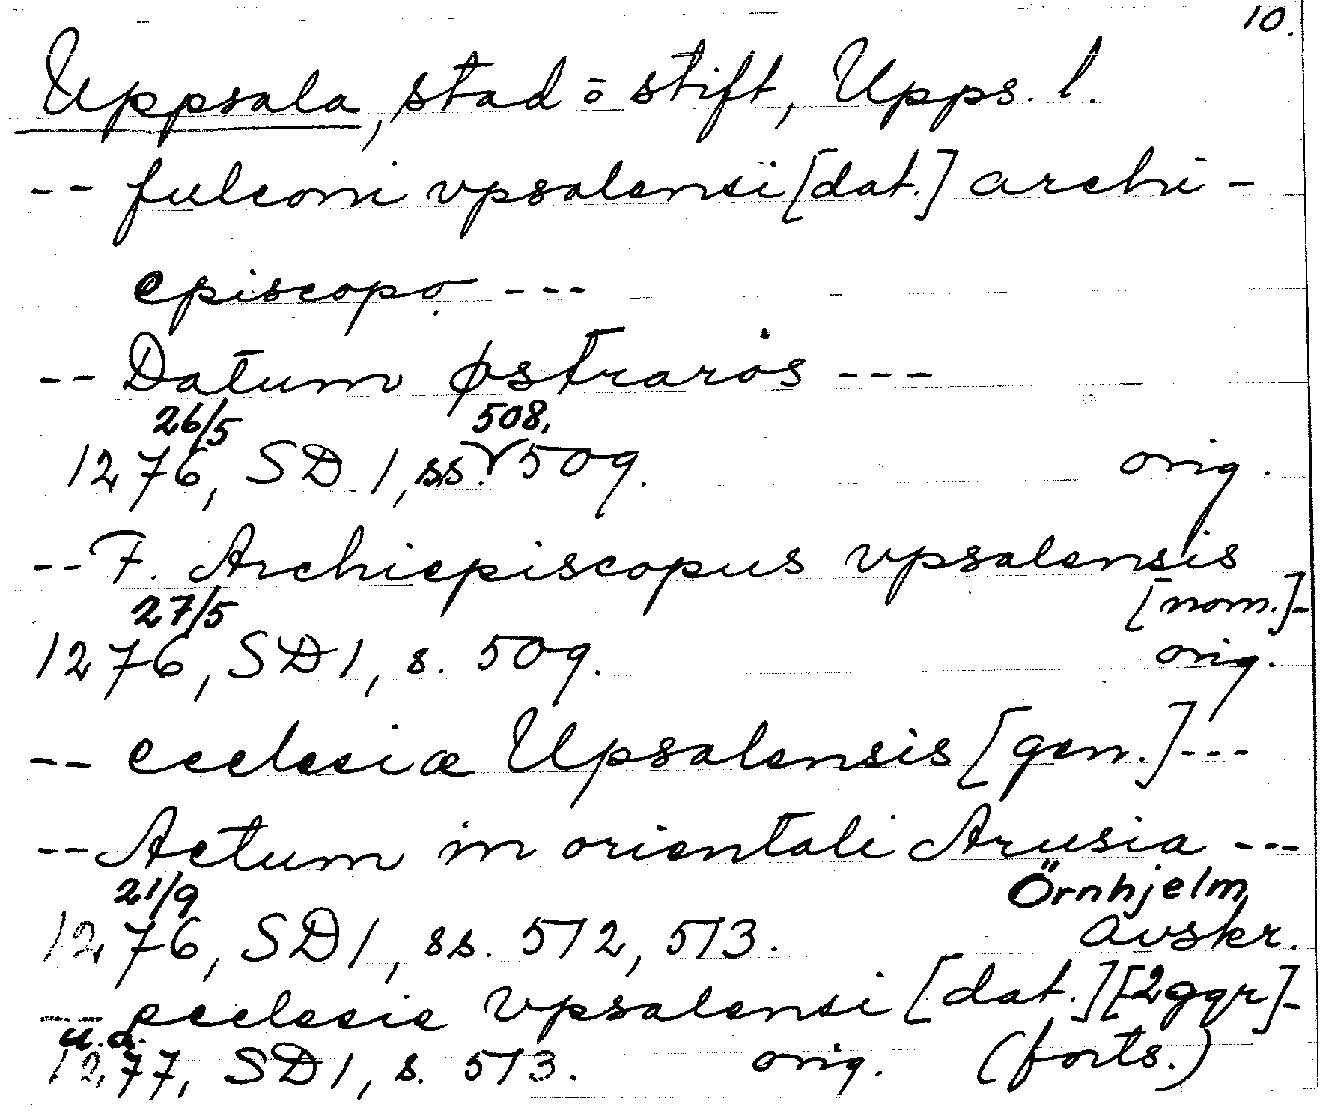 10.
Uppsala, stad o stift, Upps. l.
-- fulconi vpsalensi [dat.] archi-
episcopo ---
-- Datum østraros ---
26/5 508,
1276, SD 1, ss. 509. orig.
-- F. Archiepiscopus vpsalensis
[nom.]-
27/5
1276, SD 1, s. 509. orig.
-- ecclesiæ Upsalensis [gen.]---
-- Actum in orientali Arusia ---
21/9 Örnhjelm
1276, SD 1, ss. 512, 513. avskr.
-- ecclesie vpsalensi [dat.] [2ggr]-
u.d.
1277, SD 1, s. 513. orig. (forts.)